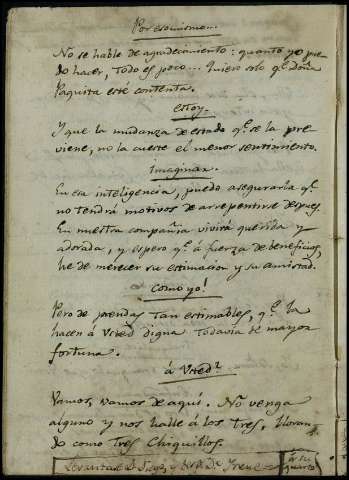 Por esso mismo...
No se hable de agradecimiento: quanto yo pue-
do hacer, todo es poco... Quiero solo q.e Doña
Paquita esté contenta.
estoy.
Y que la mudanza de estado q.e se la pre-
viene, no la cueste el menor sentimiento.
imaginar.
En esa inteligencia, puedo asegurarla q.e
no tendrá motivos de arrepentirse despues.
En nuestra compañia vivirá querida y
adorada, y espero q.e à fuerza de beneficios,
he de merecer su estimacion y su amistad.
Como yo!
Pero de prendas tan estimables, q.e la
hacen à Vsted digna todavia de mayor
fortuna.
à Vsted?
Vamos, vamos de aqui. No venga
alguno y nos halle à los tres, lloran-
do como tres chiquillos.
Levantase D. Diego, y D.a Irene
à su quarto